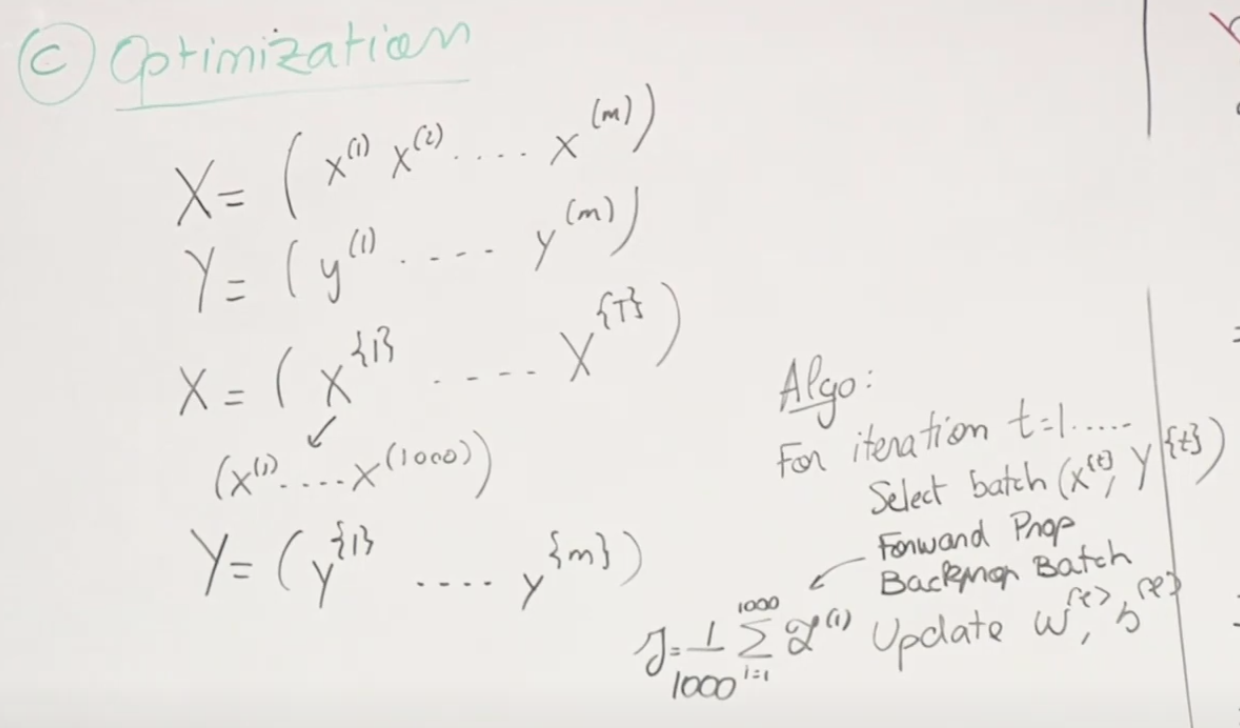 C Optimization
X = ( x^(1) x^(2) .... x^(m) )
Y = ( y^(1) .... y^(m) )
X = ( X^{1} .... X^{T} )
(x^(1) .... x^(1000))
Y = ( y^{1} .... y^{m} )
Algo:
For iteration t=1.....
Select batch (x^{t}, Y^{t})
Forward Prop
Backprop Batch
J = 1/1000 Σ_{i=1}^{1000} L^(i)
Update w^[l], b^[l]